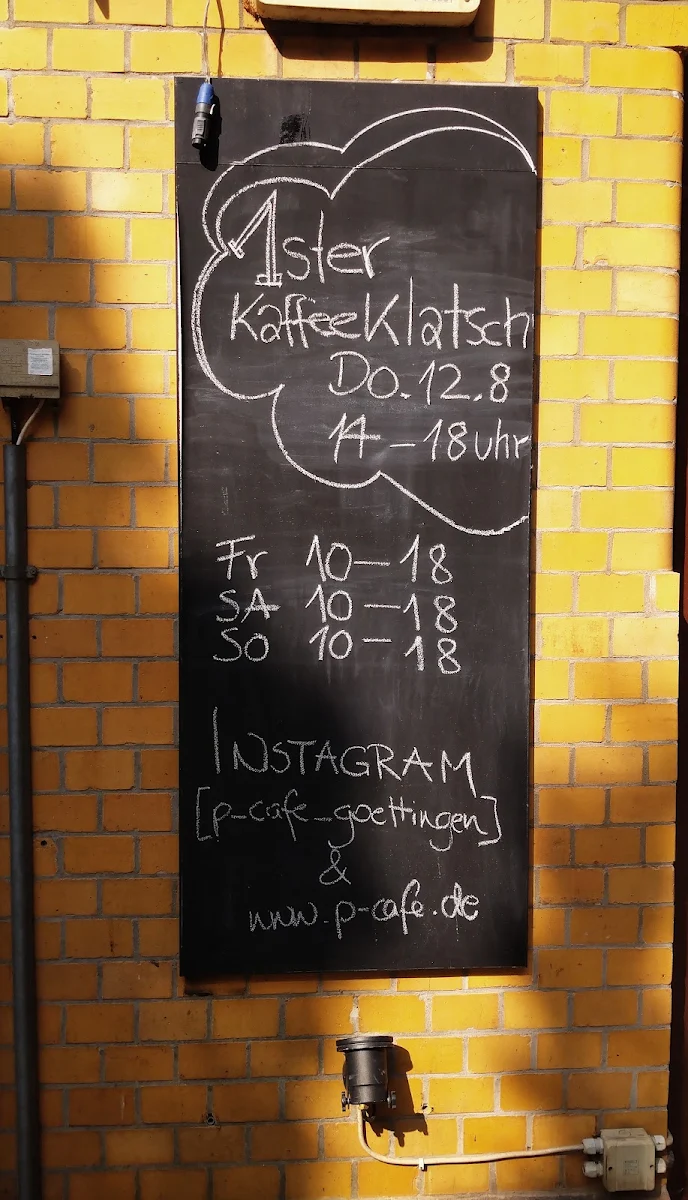 1ster
KaffeeKlatsch
Do. 12.8
14 – 18 uhr
Fr 10 – 18
SA 10 – 18
SO 10 – 18
INSTAGRAM
[p-cafe_goettingen]
&
www.p-cafe.de